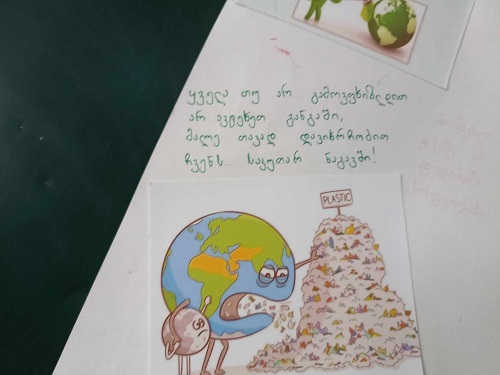 ყველა თუ არ გამოვფხიზლდით
არ ავტეხეთ განგაში,
მალე თავად დავიხრჩობით
ჩვენს საკუთარ ნაგავში!
PLASTIC